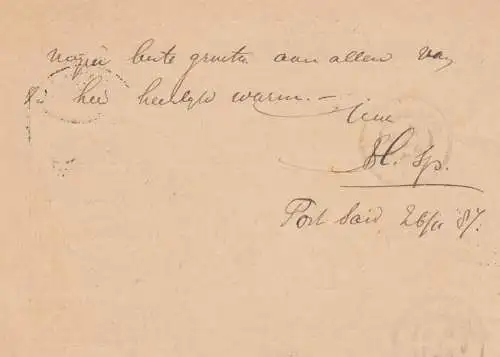 beste groeten aan allen van
hier heerlyk warm. —
H. Sp.
Port Said 26/11 87.